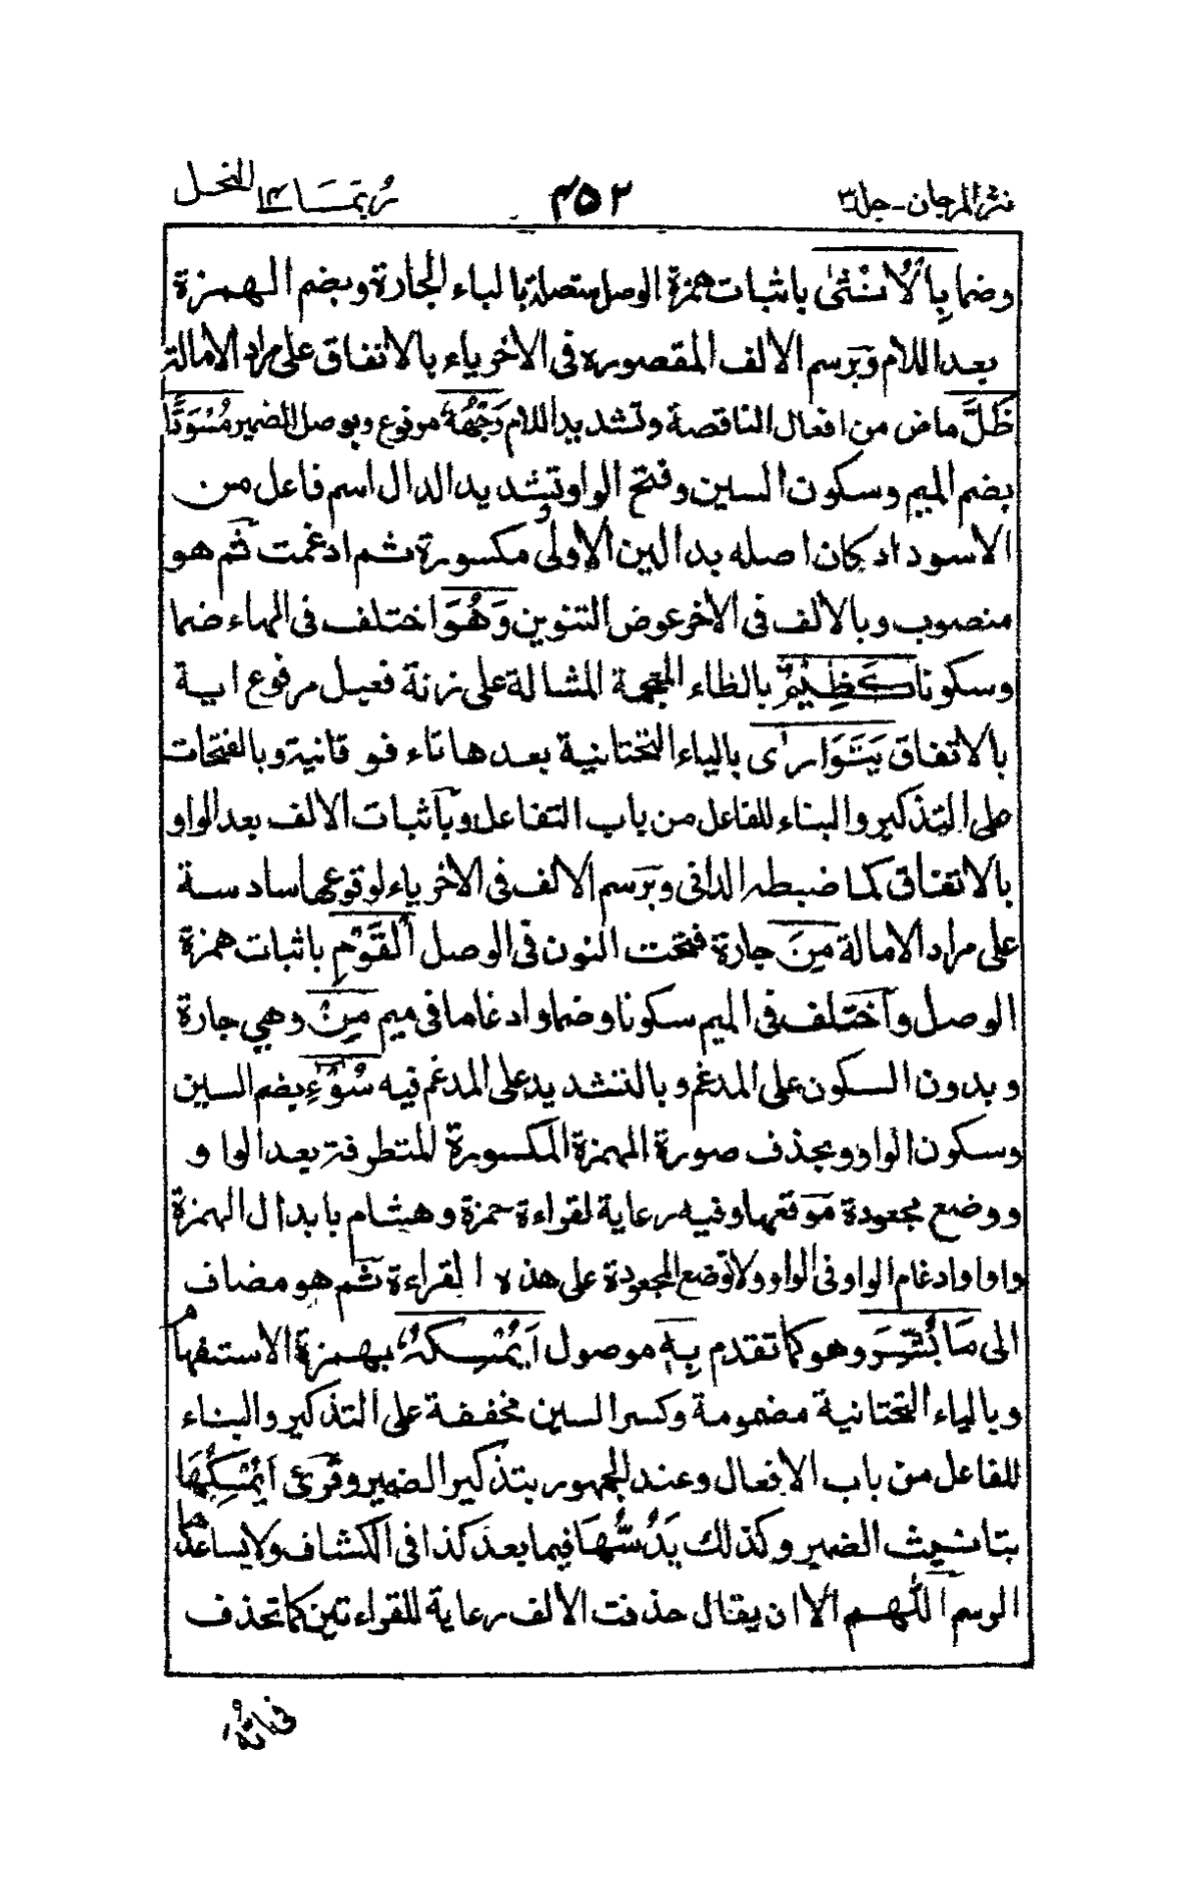 نثر المرجان - جلد ٣ ٤٥٢ رُبَمَا ١٤ النحل
وضما بِالْاُنْثٰى باثبات همزة الوصل متصلة بالباء الجارة وبضم الهمزة
بعد اللام وبَرسم الالف المقصورة فى الاخرياء بالاتفاق على مراد الامالة
ظَلَّ ماض من افعال الناقصة وتشديد اللام وَجْهُهٗ مرفوع وبوصل الضمير مُسْوَدًّا
بضم الميم وسكون السين وفتح الواو وتشديد الدال اسم فاعل من
الاسوداد كان اصله بدالين الاولى مكسورة ثم ادغمت ثم هو
منصوب وبالالف فى الاخر عوض التنوين وَهُوَ اختلف فى الهاء ضما
وسكونا كَظِيْمٌ بالظاء المعجمة المشالة على زنة فعيل مرفوع اية
بالاتفاق يَتَوَارٰى بالياء التحتانية بعدها تاء فوقانية وبالفتحات
على التذكير والبناء للفاعل من باب التفاعل وبآثبات الالف بعد الواو
بالاتفاق كما ضبطه الدانى وبَرسم الالف فى الاخرياء لوقوعها سادسة
على مراد الامالة مِنَ جارة فتحت النون فى الوصل الْقَوْمِ باثبات همزة
الوصل وآختلف فى الميم سكونا وضما وادغاما فى ميم مِنْ وهي جارة
وبدون السكون على المدغم وبالتشديد على المدغم فيه سُوْٓءِ بضم السين
وسكون الواو وبحذف صورة الهمزة المكسورة المتطرفة بعد الواو
ووضع مجعودة موقعها وفيه رعاية لقراءة حمزة وهشام بابدال الهمزة
واوا وادغام الواو فى الواو ولا توضع المجعودة على هذه القراءة ثم هو مضاف
الى مَا بُشِّرَ وهو كما تقدم بِهٖ موصول اَيُمْسِكُهٗ بهمزة الاستفهام
وبالياء التحتانية مضمومة وكسر السين مخففة على التذكير والبناء
للفاعل من باب الافعال وعند الجمهور بتذكير الضمير وقرئ اَيُمْسِكُهَا
بتانيث الضمير وكذلك يَدُسُّهَا فيما بعد كذا فى الكشاف ولا يساعدهما
الرسم اللّٰهم الا ان يقال حذفت الالف رعاية للقراءتين كما تحذف